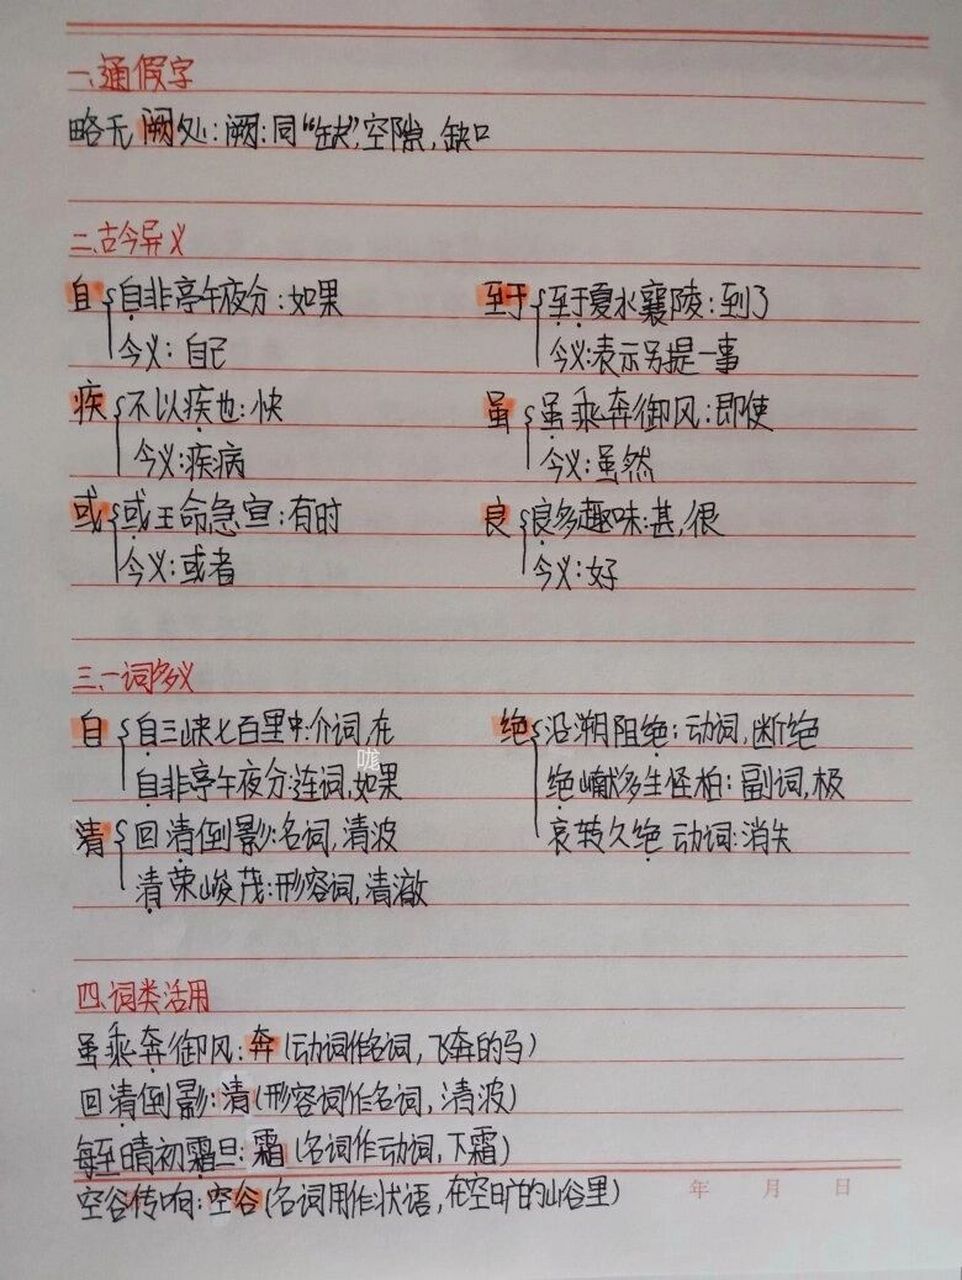 一、通假字
略无阙处:阙:同“缺”,空隙,缺口
二、古今异义
自 自非亭午夜分:如果
今义:自己
至于 至于夏水襄陵:到了
今义:表示另提一事
疾 不以疾也:快
今义:疾病
虽 虽乘奔御风:即使
今义:虽然
或 或王命急宣:有时
今义:或者
良 良多趣味:甚,很
今义:好
三、一词多义
自 自三峡七百里中:介词,在
自非亭午夜分:连词,如果
清 回清倒影:名词,清波
清荣峻茂:形容词,清澈
绝 沿溯阻绝:动词,断绝
绝巘多生怪柏:副词,极
哀转久绝 动词:消失
咙
四、词类活用
虽乘奔御风:奔(动词作名词,飞奔的马)
回清倒影:清(形容词作名词,清波)
每至晴初霜旦:霜(名词作动词,下霜)
空谷传响:空谷(名词用作状语,在空旷的山谷里)
年 月 日